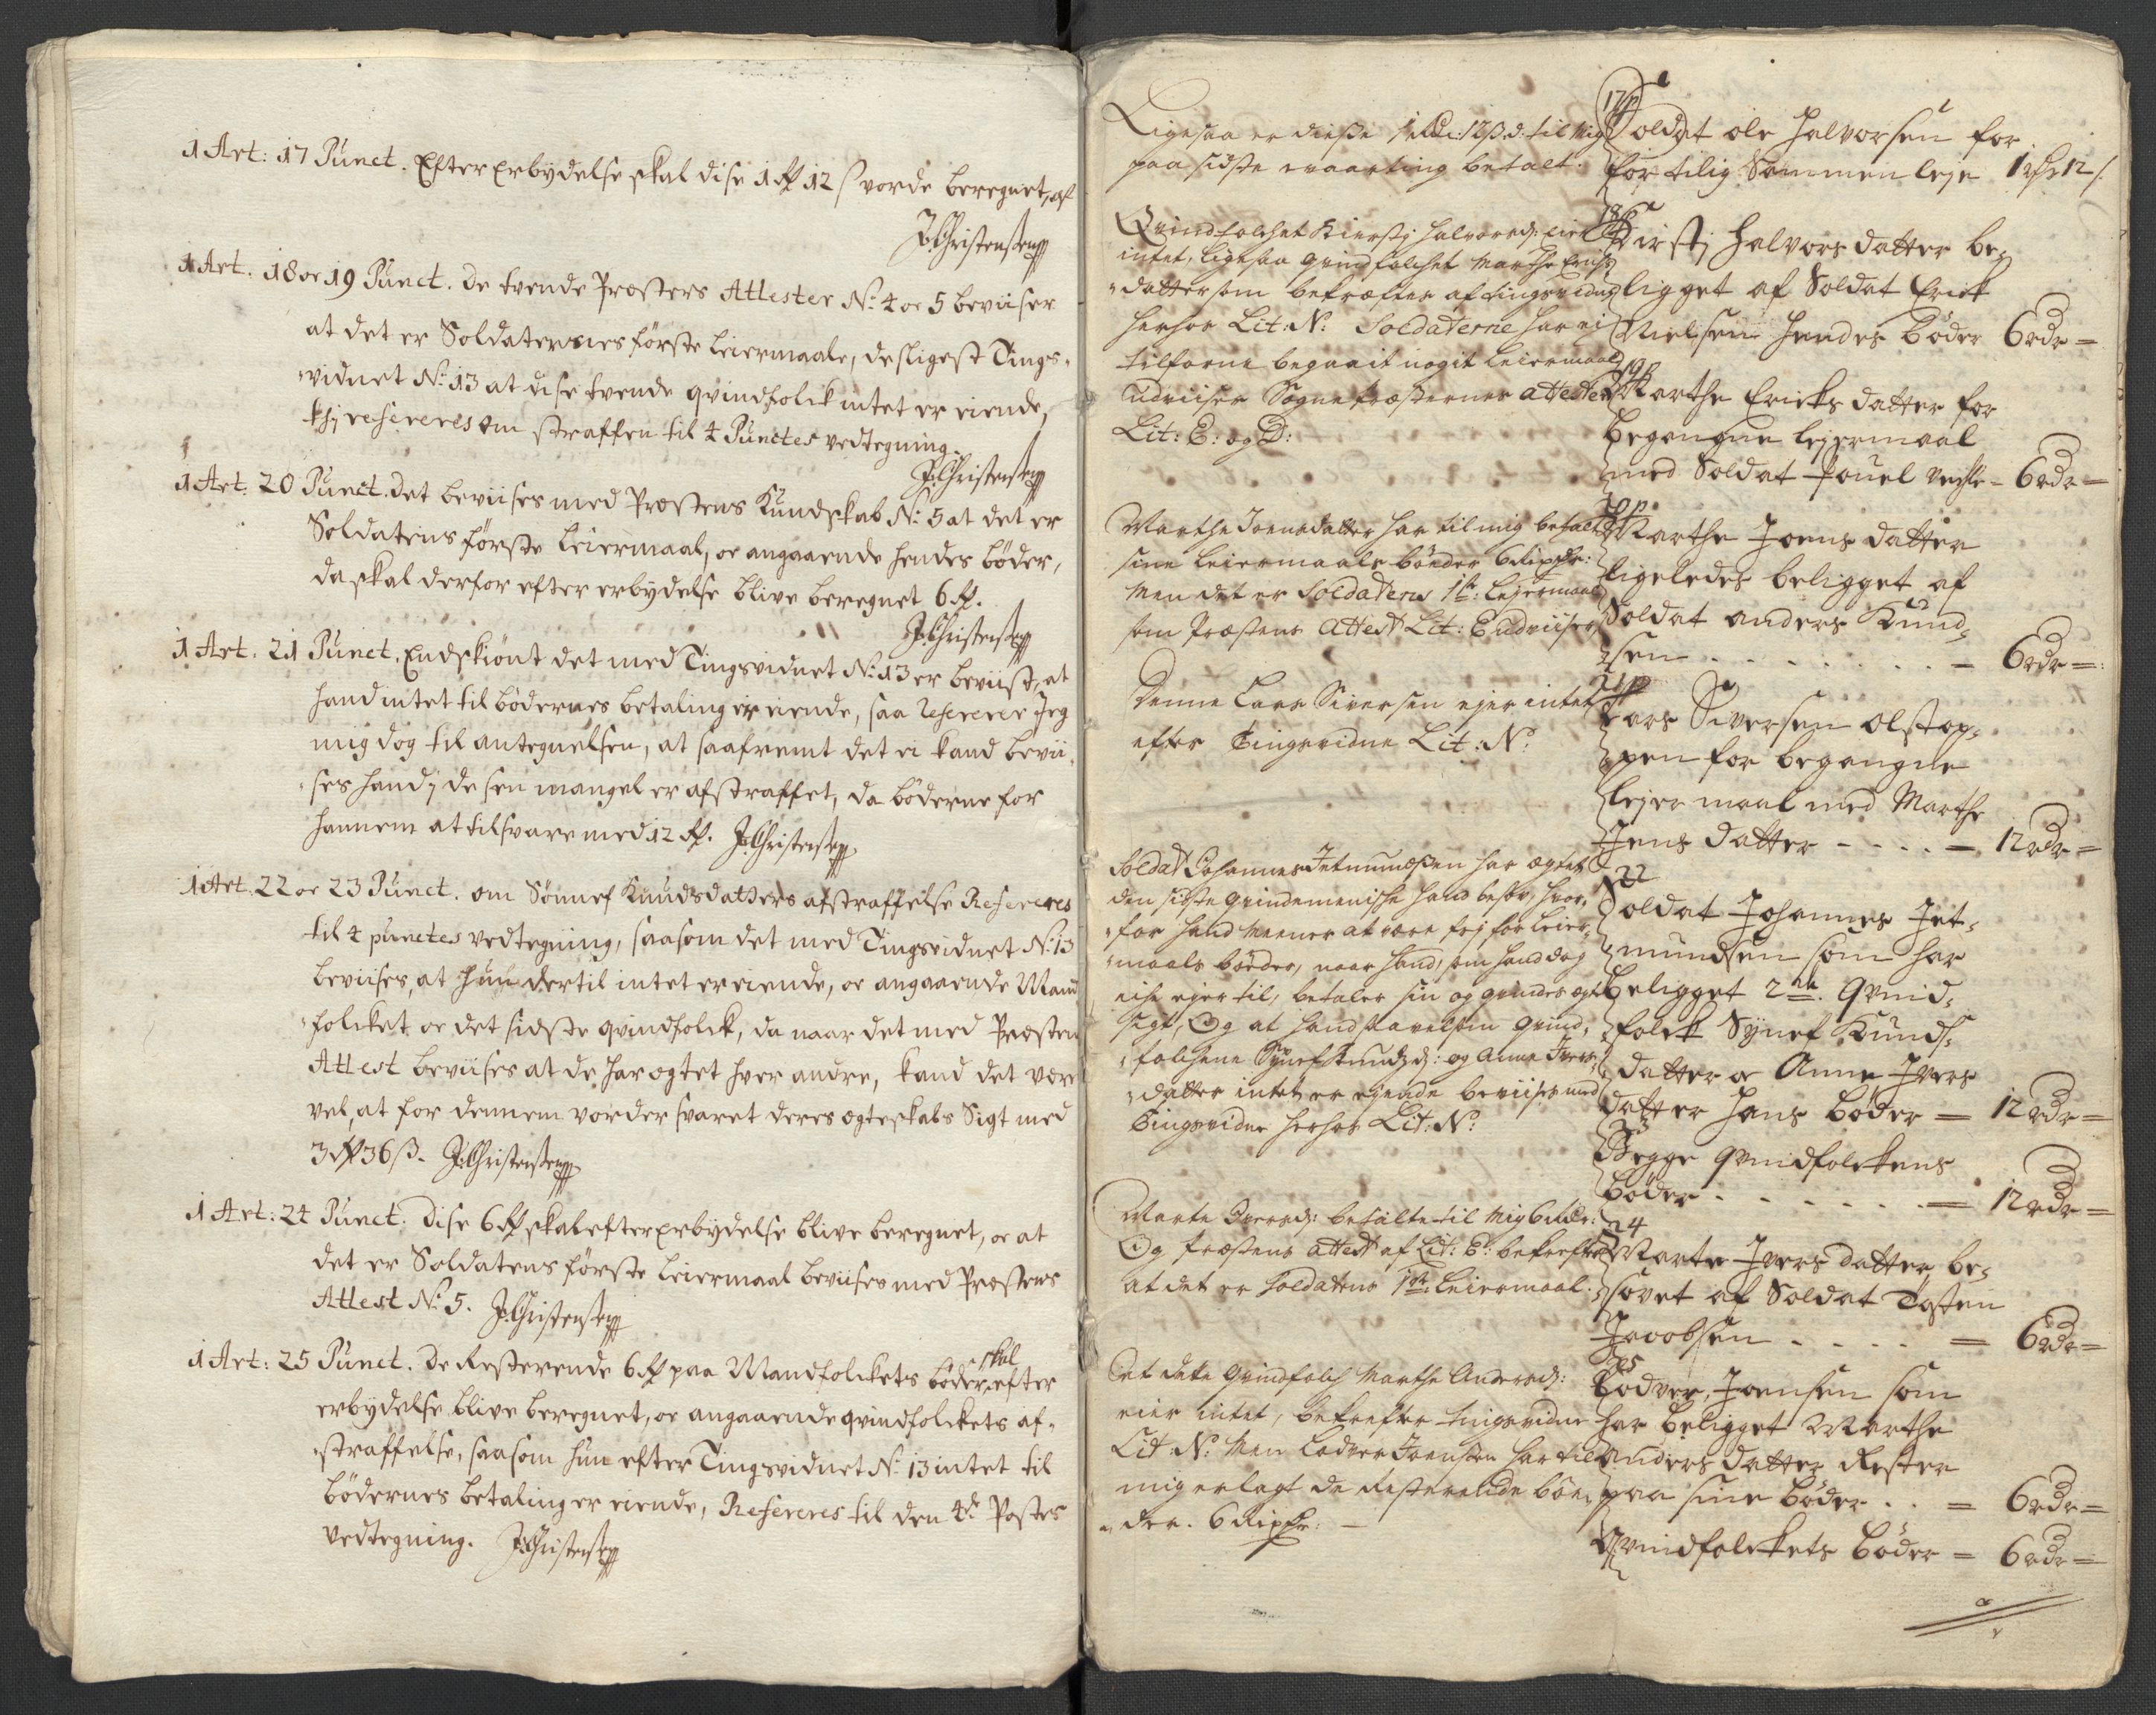 1 Art: 17 Punct. Efter Erbydelse skal dise 1 Rdr 12 s vorde beregnet, af
J: Christensen
1 Art. 18 oc 19 Punct. De tvende Præsters Attester No: 4 oc 5 beviiser
at det er Soldaternes første Leiermaale, desligest Tings-
vidnet No: 13 at dise tvende qvindfolck intet er eiende,
thj refereres om straffen til 4 Punctes vedtegning.
J: Christensen
1 Art: 20 Punct. Det beviises med Præstens Kundskab No: 5 at det er
Soldatens første Leiermaal, oc angaaende hendes bøder,
da skal derfor efter erbydelse blive beregnet 6 Rdr.
J: Christensen
1 Art. 21 Punct. Endskiønt det med Tingsvidnet No: 13 er beviist, at
hand intet til bødernes betaling er eiende, saa Refererer Jeg
mig dog til antegnelsen, at saafremt det ei kand bevii-
ses hand j de sen mangel er afstraffet, da bøderne for
hannem at tilsvare med 12 Rdr. J: Christensen
1 Art. 22 oc 23 Punct. om Sønnef Knudsdatters afstraffelse Refereres
til 4 punctes vedtegning, saasom det med Tingsvidnet No: 13
beviises, at hun dertil intet er eiende, oc angaaende Mand
folcket oc det sidste qvindfolck, da naar det med Præstens
Attest beviises at de har ægtet hver andre, kand det være
vel, at for dennem vorder svaret deres ægteskabs Sigt med
3 Rdr 36 ß. J: Christensen
1 Art: 24 Punct: Dise 6 Rdr skal efter erbydelse blive beregnet, oc at
det er Soldatens første Leiermaal beviises med Præstens
Attest No: 5. J: Christensen
1 Art: 25 Punct. De Resterende 6 Rdr paa Mandfolckets bøder skal efter
erbydelse blive beregnet, oc angaaende qvindfolckets af-
straffelse, saasom hun efter Tingsvidnet No: 13 intet til
bødernes betaling er eiende, Refereres til den 4de Postes
vedtegning. J: Christensen
Ligesaa er disse 1 Rdr: 12 ß. d: til mig
paa sidste waarting betalt.
Qvindfolchet Kiersti Halvorsd: eier
intet, ligesaa qvindfolchet Marthe Erichs
datter som bekræftes af tingsvidne
herhos Lit: N: Soldaterne har ei
tilforne begaait nogit Leiermaal
Udviiser Sogne Præsternes attester
Lit: E: og D:
Marthe Joensdatter har til mig betalt
sine Leiermaals bøeder 6 Rixdr:
Men det er Soldatens 1te: Lejermaal
som Præstens Attest Lit: E udviiser
Denne Lars Siversen ejer intet
efter Tingsvidne Lit: N:
Soldat Johannes Jetmundsen har ægtet
den sidste qvindemenische hand besov, hvor-
for hand meener at være frj for Leier-
maals bøeder, naar hand, som hand dog
ei ejer til, betaler sin og qvindes ægt
sigt, Og at hand saavelsom qvind-
folchene Synef Knudsd: og Anne Ivers-
datter intet er ejende beviises med
Tingsvidne herhos Lit: N:
Marte Iversd: betalte til mig 6 Rdr:
Og Præstens attest af Lit: E: bekrefter
at det er Soldatens 1te: Leiermaal.
Det dete Qvindfolch Marthe Andersd:
eier intet, bekrefter tingsvidne
Lit: N: Men Lodver Joensen har til
mig erlagt de Resterende bøe-
der. 6 Rixdr: —
17 p
Soldat ole Halvorsen for
for tilig Sammenleje 1 rdr 12 s.
18 p
Kirstj Halvorsdatter be-
ligget af Soldat Erick
Nielsen hendes bøder 6 rdr =
19 p
Marthe Ericksdatter for
begangne lejermaal
med Soldat Pouel - 6 rdr =
20 p.
Marthe Joens datter
ligeledes beligget af
Soldat anders Knud-
sen . . . . . . — 6 rdr =
21 p
Lars Siversen Olstap-
pen for begangne
lejermaal med Marthe
Jens datter - - - — 12 rdr =
22
Soldat Johannes Jet-
mundsen som har
beligget 2de. Qvind-
folck Synef Knuds-
datter oc Anne Ivers
datter hans bøder = 12 rdr =
23
Begge qvindfolckens
bøder . . . . . . = 12 rdr =
24
Marte Ivers datter be-
sovet af Soldat Tosten
Jacobsen . . . . = 6 rdr =
25
Lodver Joensen som
har beligget Marthe
Anders datter Rester
paa sine bøder . . = 6 rdr =
Qvindfolckets bøder = 6 rdr =